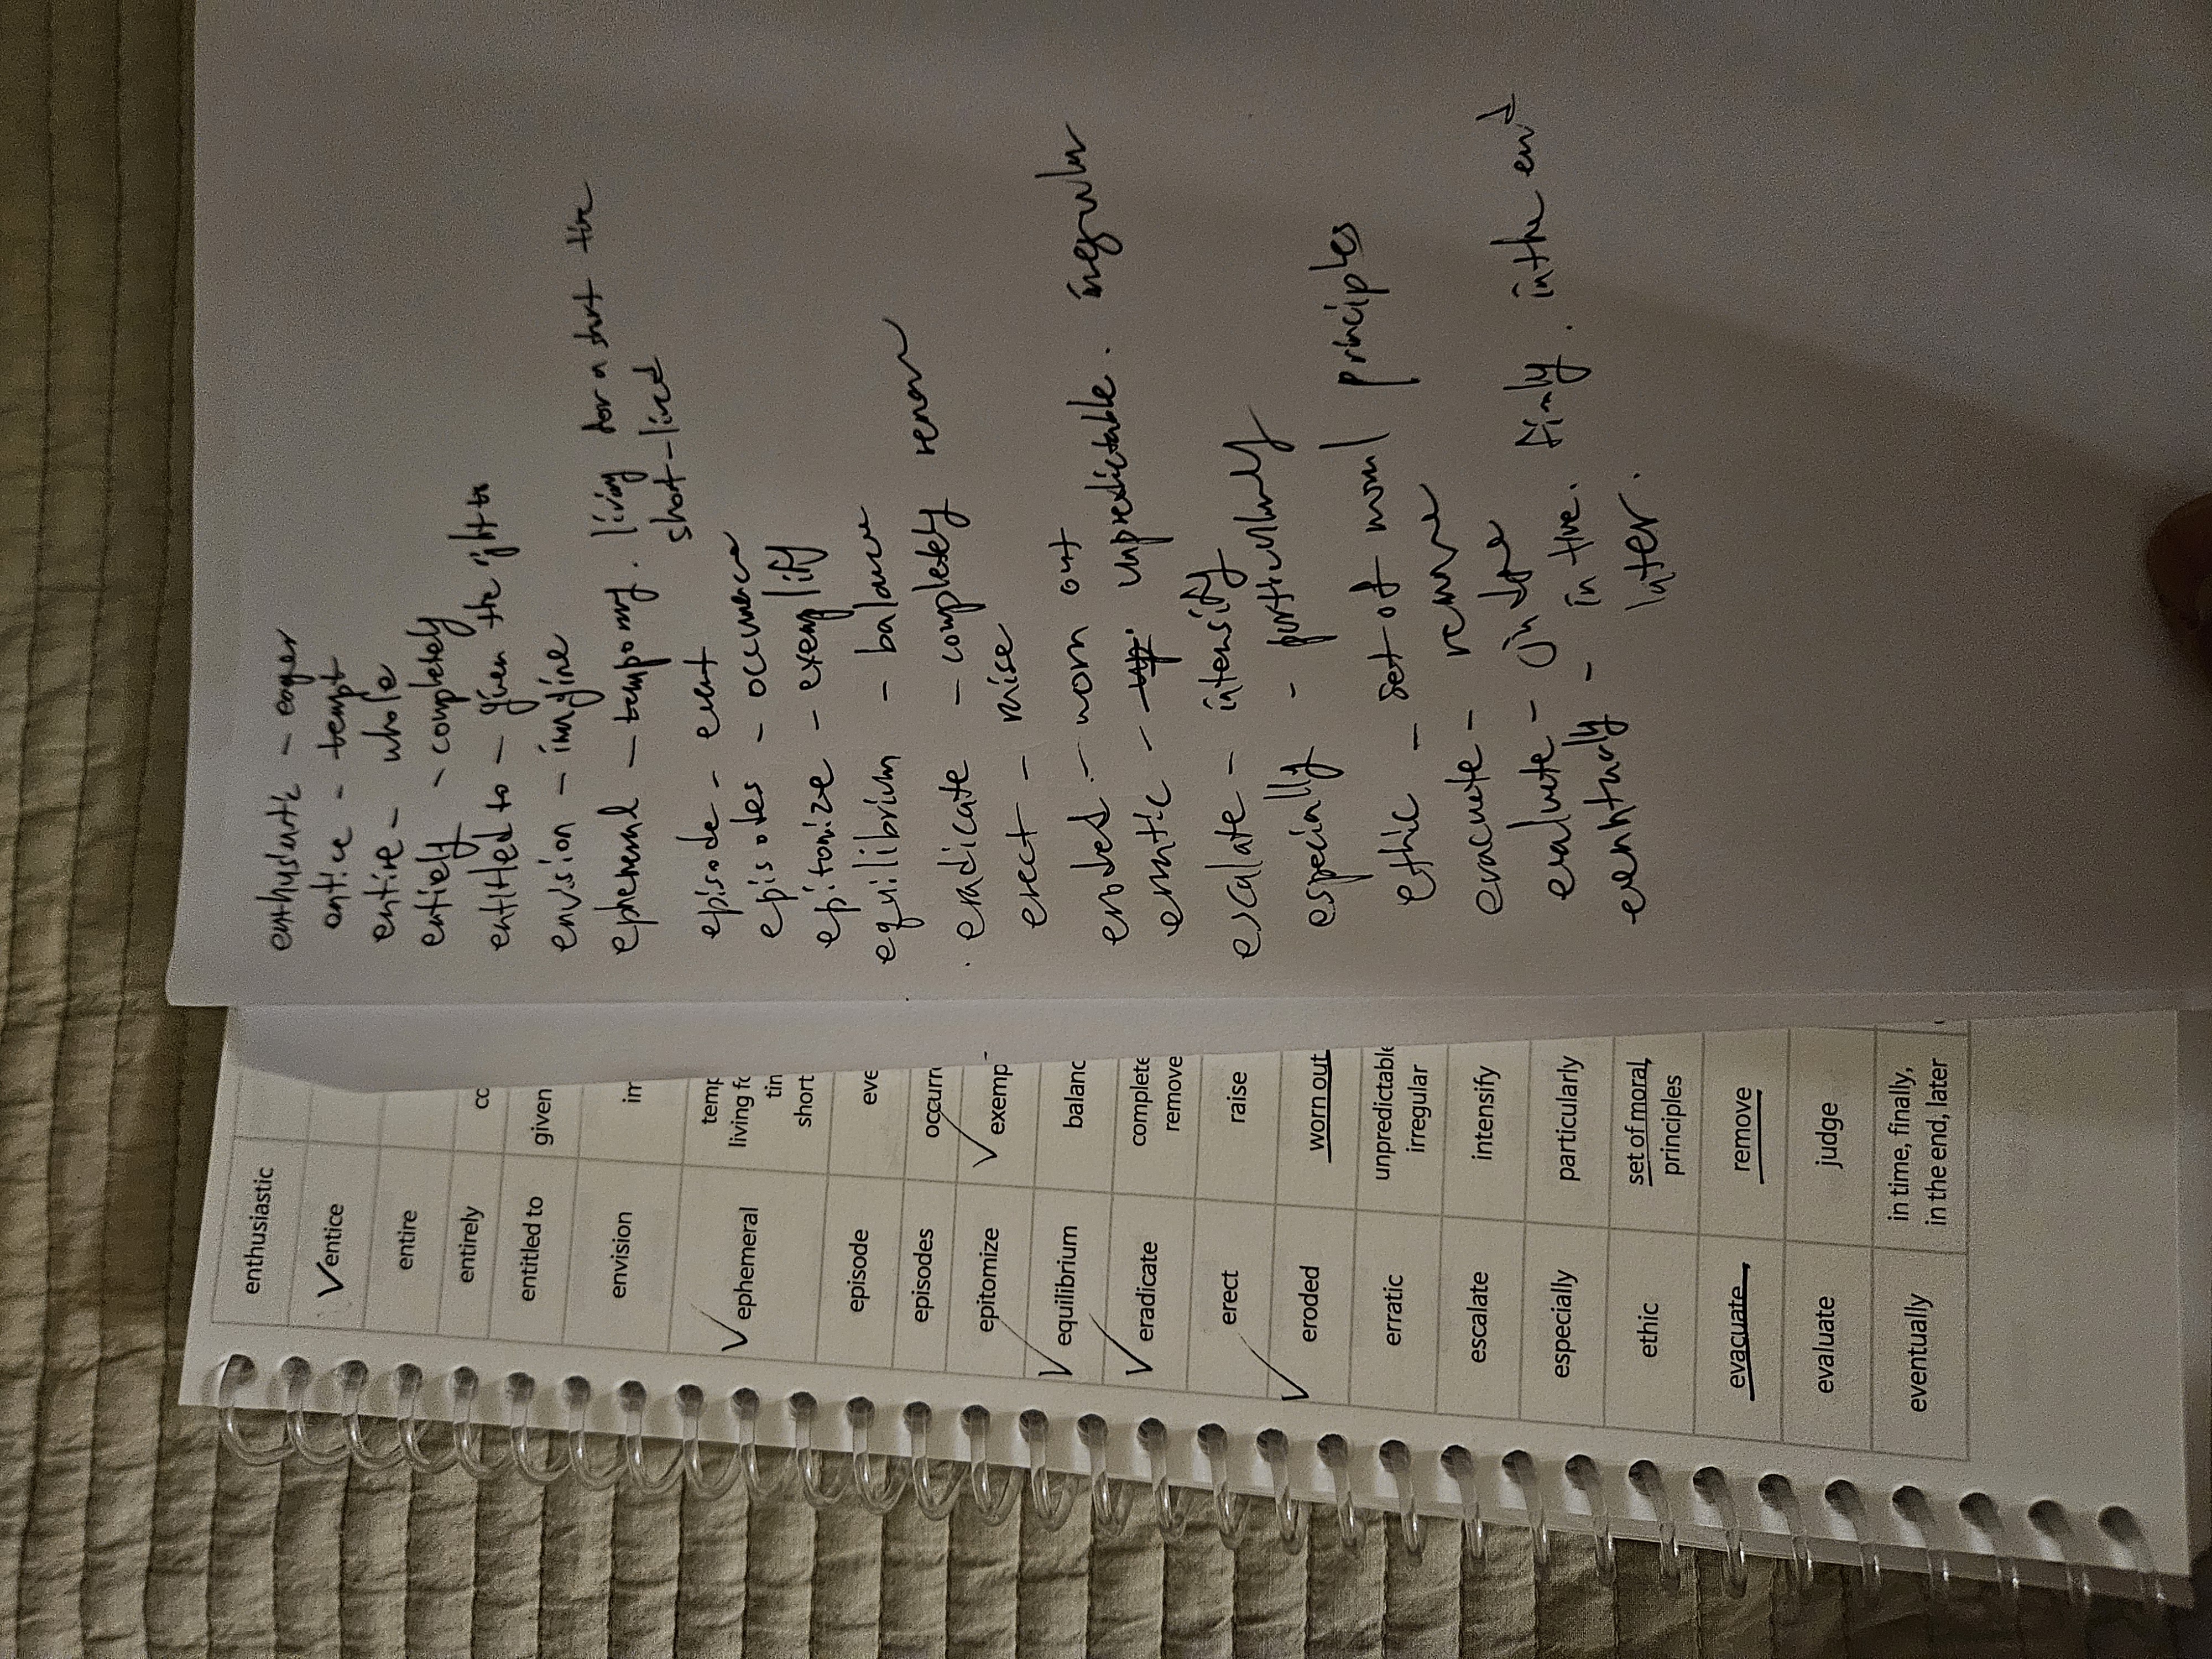 enthusiastic
entice
entire
entirely cc
entitled to given
envision im
ephemeral temp
living fo
tin
short
episode eve
episodes occurre
epitomize exemp
equilibrium balanc
eradicate complete
remove
erect raise
eroded worn out
erratic unpredictable
irregular
escalate intensify
especially particularly
ethic set of moral,
principles
evacuate remove
evaluate judge
eventually in time, finally,
in the end, later
enthusiastic - eager
entice - tempt
entire - whole
entiely - completely
entitled to - given the right to
envision - imagine
ephemeral - temporary. living for a short time
short-lived
episode - event
episodes - occurrence
epitomize - exemplify
equilibrium - balance
eradicate - completely remove
erect - raise
eroded - worn out
erratic - unpredictable. irregular
escalate - intensify
especially - particularly
ethic - set of moral principles
evacuate - remove
evaluate - judge
eventually - in time. finaly. in the end
later.